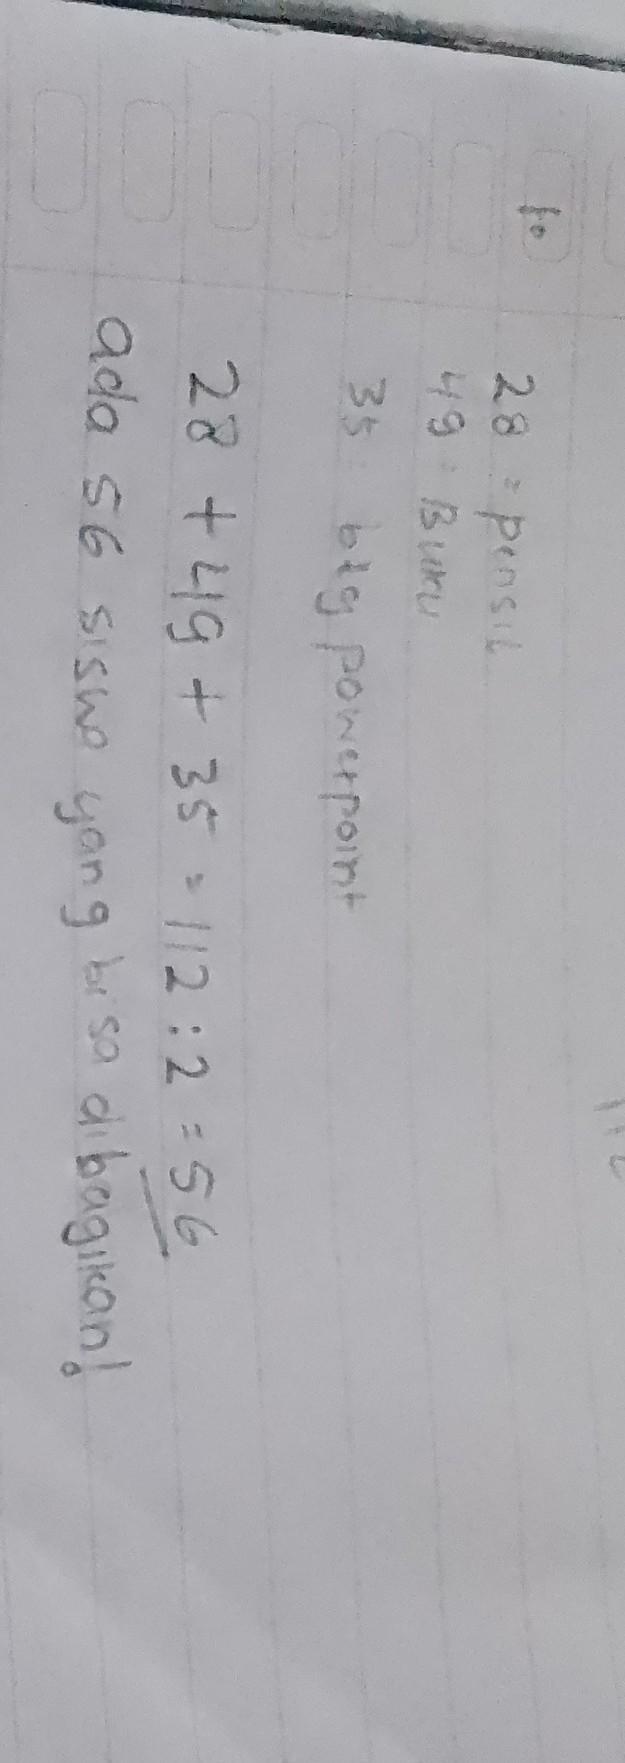 1.
28 = pensil
49 = Buku
35 = btg powerpoint
28 + 49 + 35 = 112 : 2 = 56
ada 56 siswa yang bisa dibagikan!